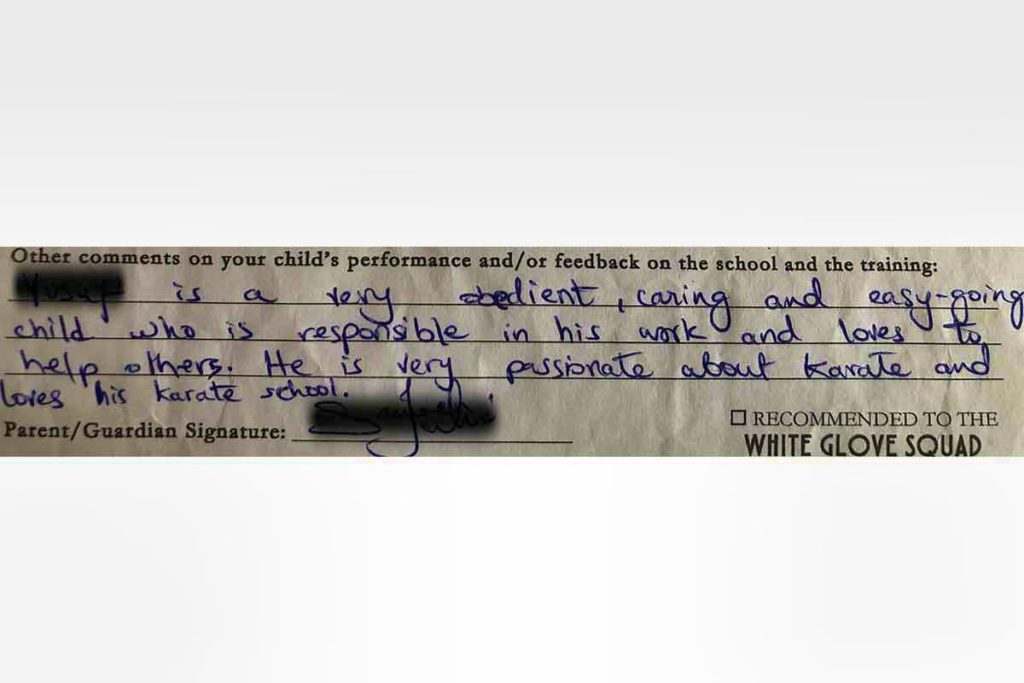 Other comments on your child's performance and/or feedback on the school and the training:
is a very obedient, caring and easy-going
child who is responsible in his work and loves to
help others. He is very passionate about karate and
loves his karate school.
Parent/Guardian Signature:
☐ RECOMMENDED TO THE
WHITE GLOVE SQUAD